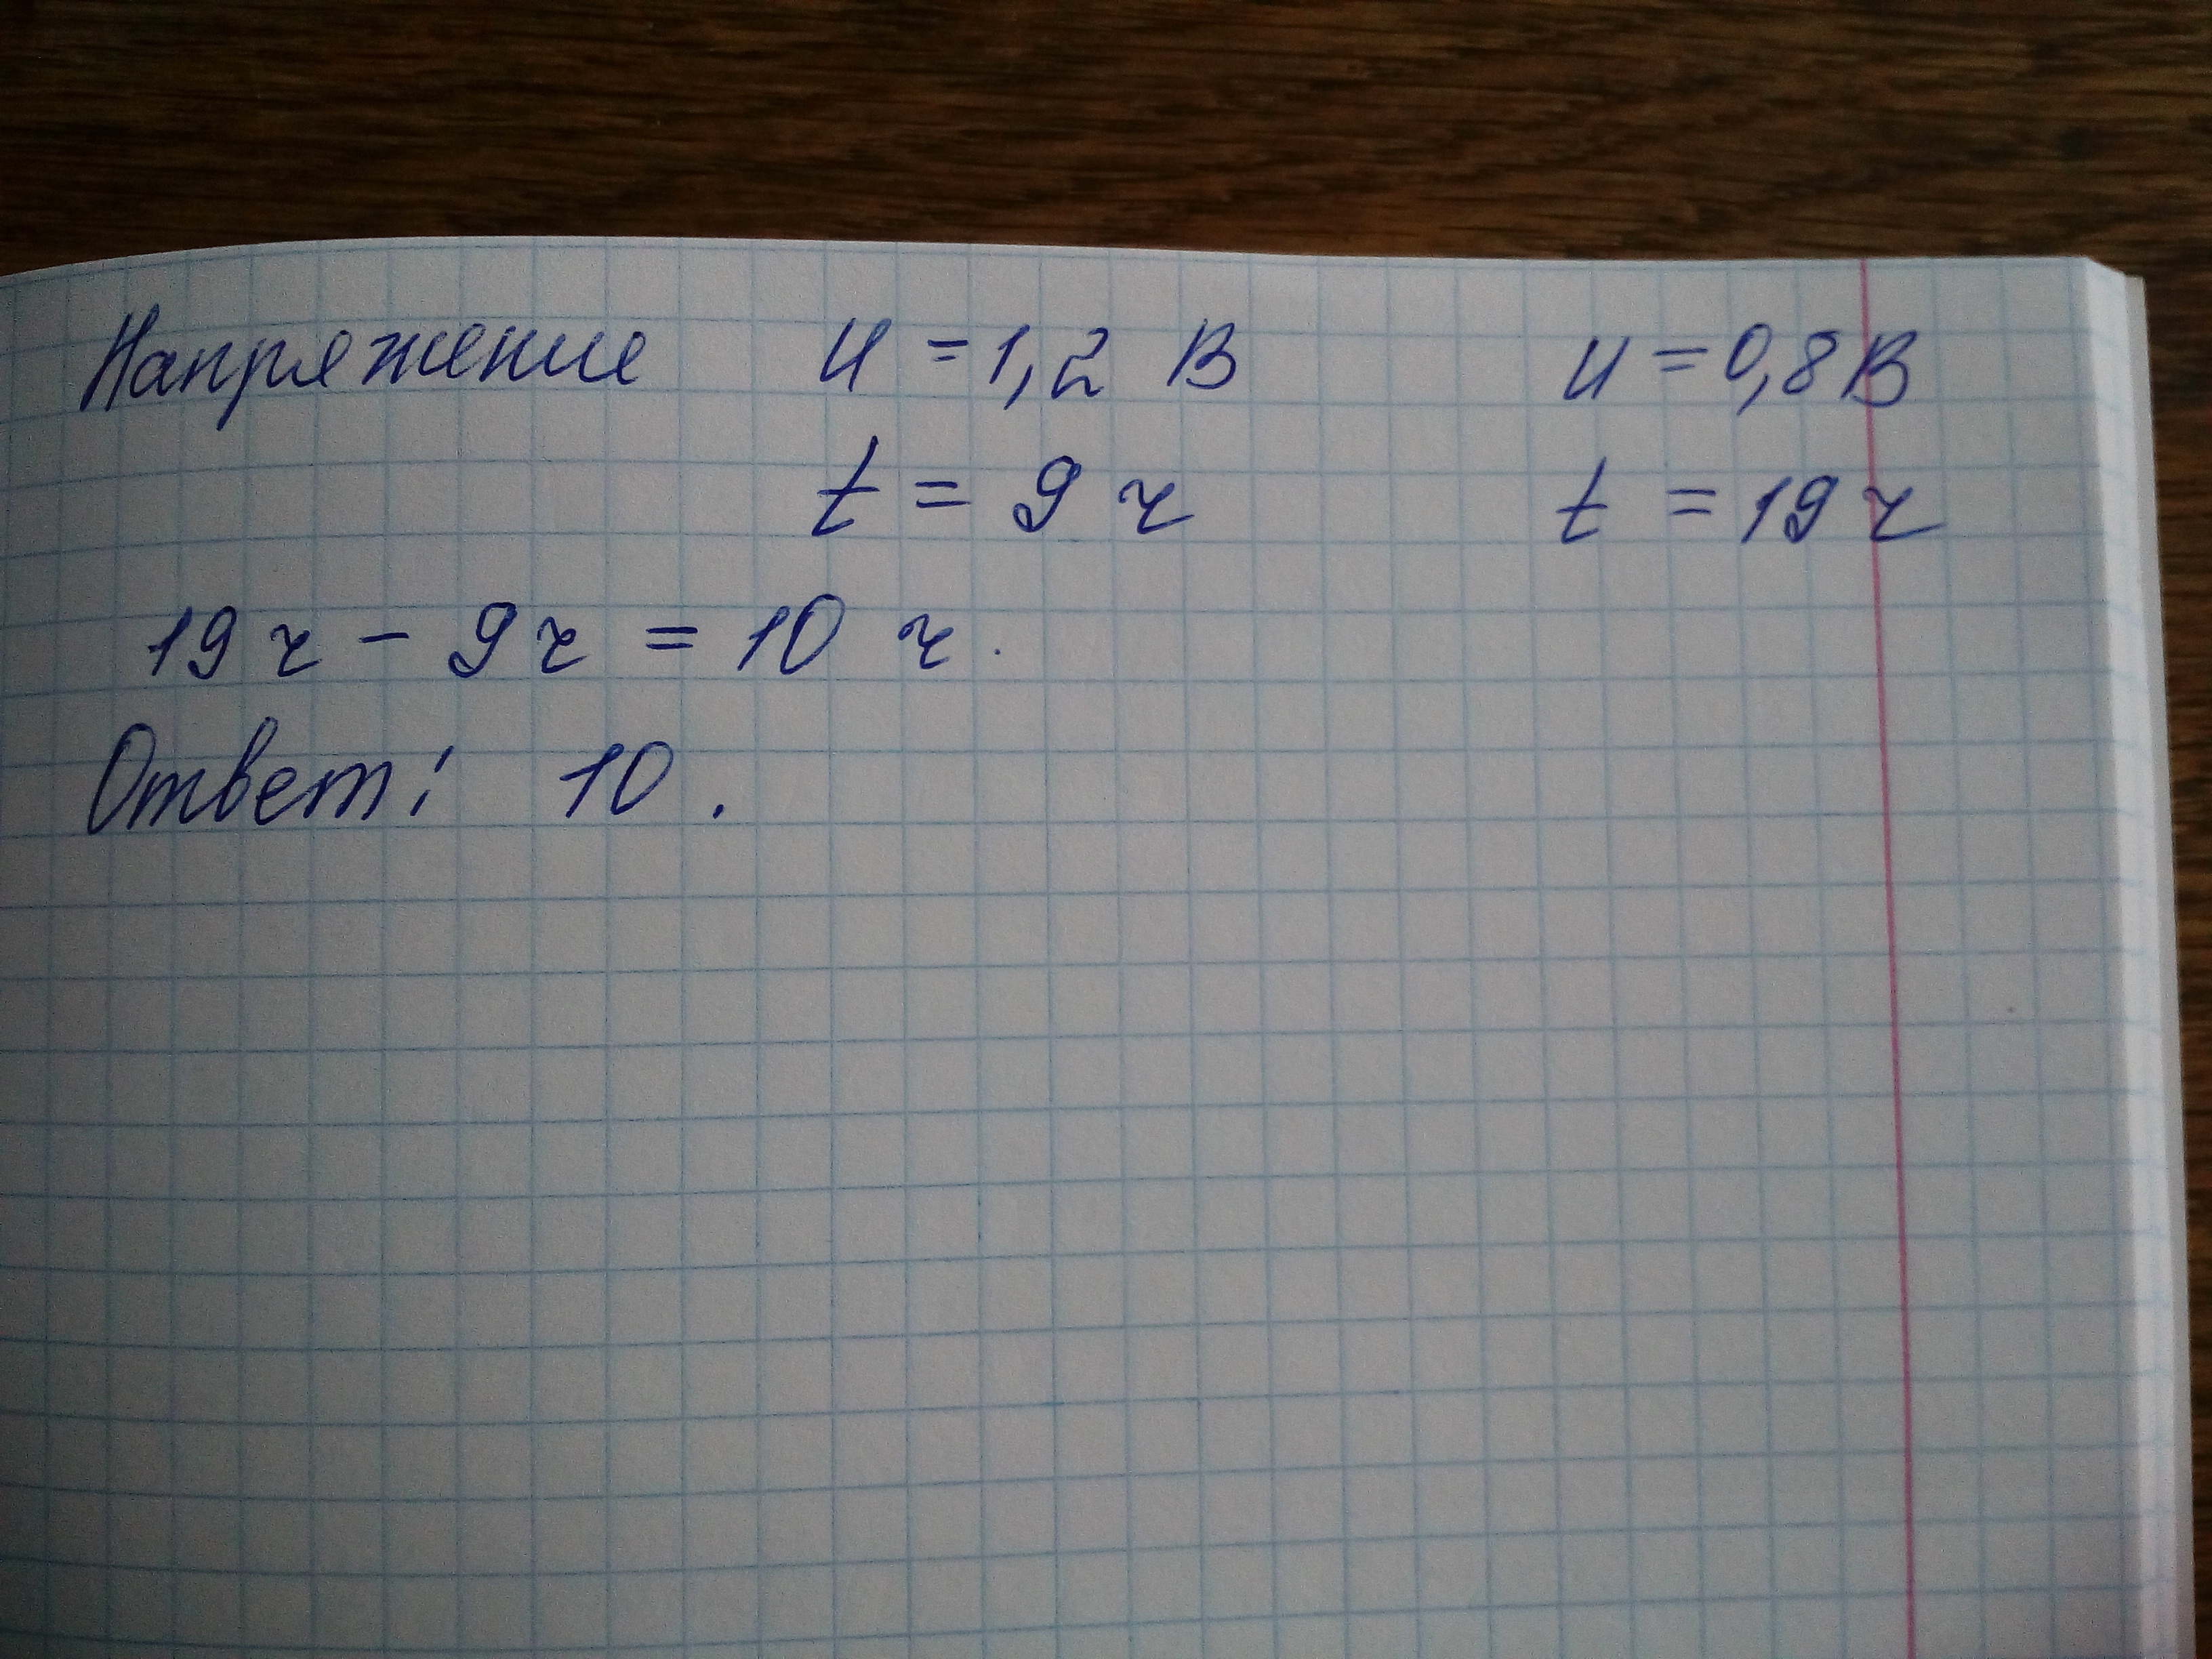 Напряжение U = 1,2 В U = 0,8 В
t = 9 ч t = 19 ч
19 ч - 9 ч = 10 ч.
Ответ: 10.